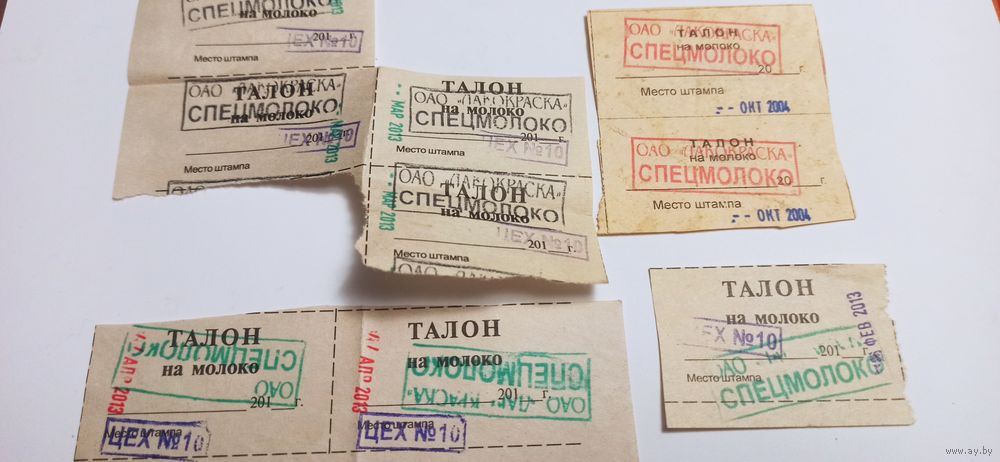 СПЕЦМОЛОКО
на молоко
201 г.
ЦЕХ №10
Место штампа
ТАЛОН
СПЕЦМОЛОКО
на молоко
201 г.
ЦЕХ №10
2013
Место штампа
ОАО
ТАЛОН
ОАО "ЛАКОКРАСКА"
на молоко
СПЕЦМОЛОКО
МАР 2013
201 г.
ЦЕХ №10
Место штампа
ОАО "ЛАКОКРАСКА"
ТАЛОН
СПЕЦМОЛОКО
на молоко
МАР 2013
201 г.
ЦЕХ №10
Место штампа
ОАО
ОАО "ЛАКОКРАСКА"
ТАЛОН
на молоко
СПЕЦМОЛОКО
20 г.
Место штампа
-- ОКТ 2004
ТАЛОН
ОАО "ЛАКОКРАСКА"
на молоко
СПЕЦМОЛОКО
20 г.
Место штампа
-- ОКТ 2004
ТАЛОН
на молоко
СПЕЦМОЛОКО
ОАО
АПР 2013
201 г.
Место штампа
ЦЕХ №10
ТАЛОН
на молоко
СПЕЦМОЛОКО
ОАО
АПР 2013
201 г.
Место штампа
ЦЕХ №10
ТАЛОН
на молоко
ЦЕХ №10
201 г.
ФЕВ 2013
Место штампа
ОАО
СПЕЦМОЛОКО
www.ay.by